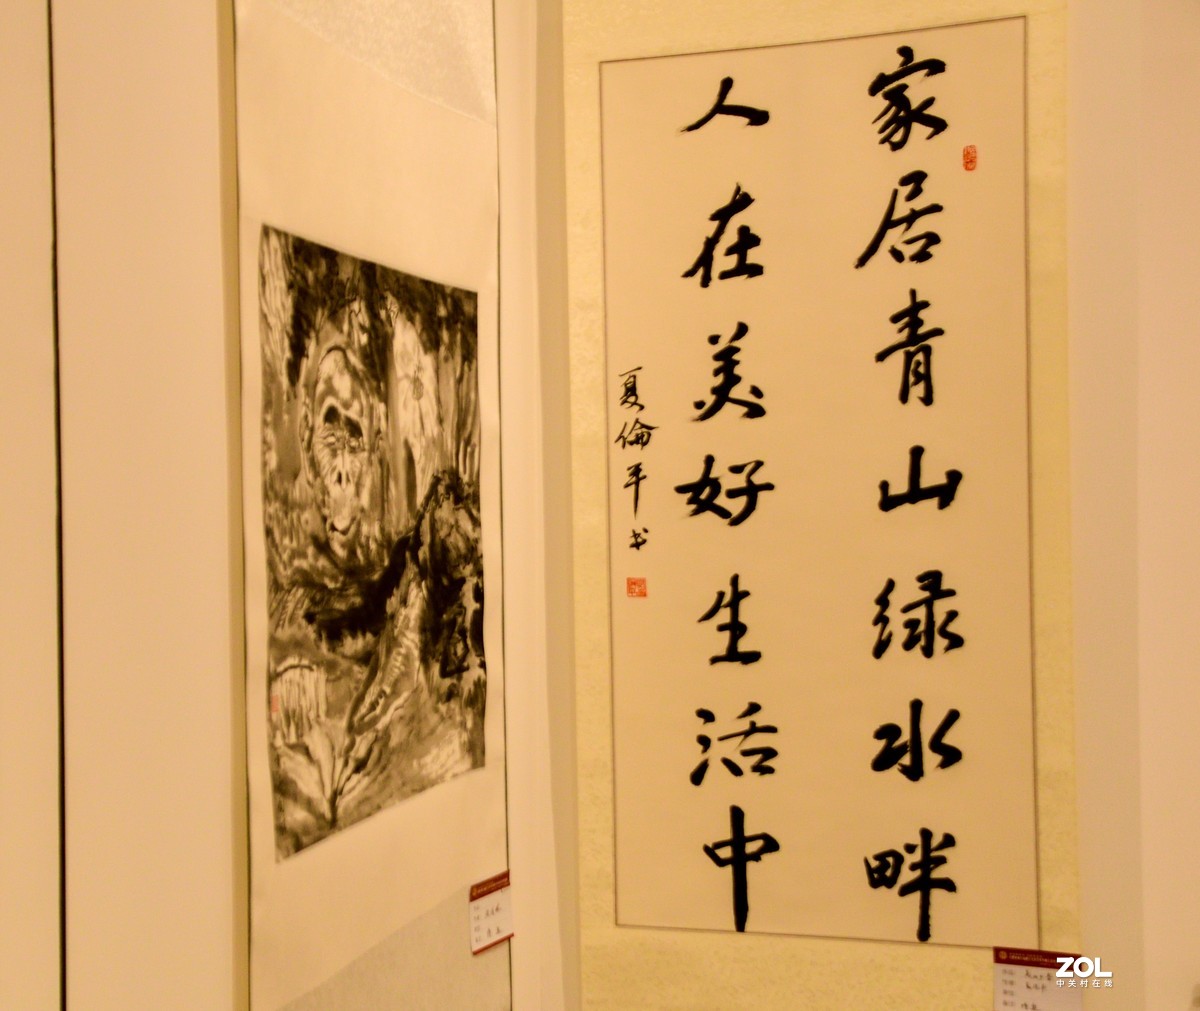 家居青山绿水畔
人在美好生活中
夏倫平书
ZOL
中关村在线